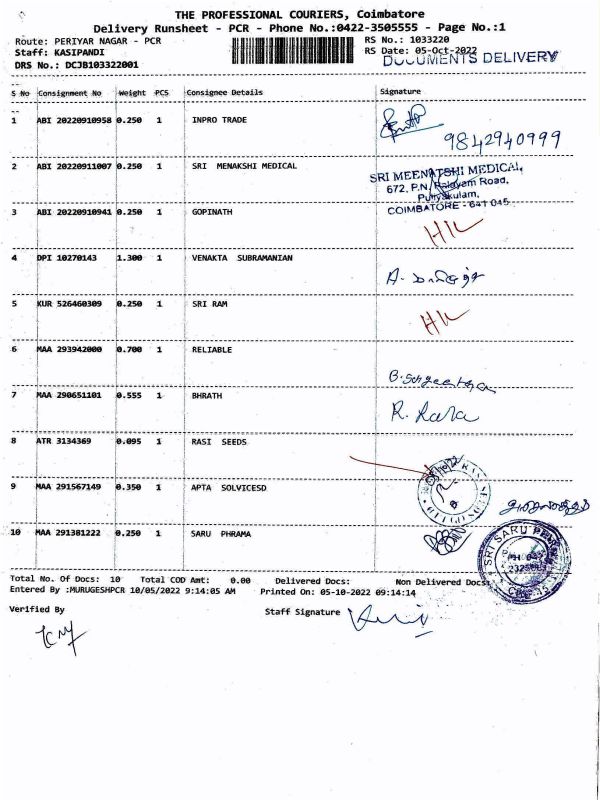 THE PROFESSIONAL COURIERS, Coimbatore
Delivery Runsheet - PCR - Phone No.:0422-3505555 - Page No.:1
Route: PERIYAR NAGAR - PCR RS No.: 1033220
Staff: KASIPANDI RS Date: 05-Oct-2022
DRS No.: DCJB103322001 DOCUMENTS DELIVERY
S No Consignment No Weight PCS Consignee Details Signature
1 ABI 20220910958 0.250 1 INPRO TRADE
9842940999
2 ABI 20220911007 0.250 1 SRI MENAKSHI MEDICAL
SRI MEENATSHI MEDICAL,
672, P.N. Palayam Road,
Puliyakulam,
COIMBATORE - 641 045
3 ABI 20220910941 0.250 1 GOPINATH
4 DPI 10270143 1.300 1 VENAKTA SUBRAMANIAN
5 KUR 526460309 0.250 1 SRI RAM
6 MAA 293942000 0.700 1 RELIABLE
7 MAA 290651101 0.555 1 BHRATH
8 ATR 3134369 0.095 1 RASI SEEDS
9 MAA 291567149 0.350 1 APTA SOLVICESD
10 MAA 291381222 0.250 1 SARU PHRAMA
SRI SARU
Total No. Of Docs: 10 Total COD Amt: 0.00 Delivered Docs: Non Delivered Docs
Entered By :MURUGESHPCR 10/05/2022 9:14:05 AM Printed On: 05-10-2022 09:14:14
Verified By Staff Signature